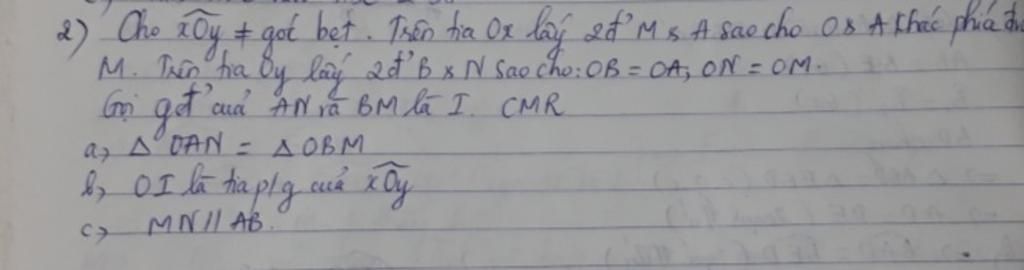 2) Cho xOy ≠ góc bẹt. Trên tia Ox lấy 2đ' M & A sao cho O & A khác phía đv
M. Trên tia Oy lấy 2đ' B & N sao cho: OB = OA; ON = OM.
Gọi gđ' của AN và BM là I. CMR
a, Δ OAN = Δ OBM
b, OI là tia p/g của xOy
c, MN // AB.